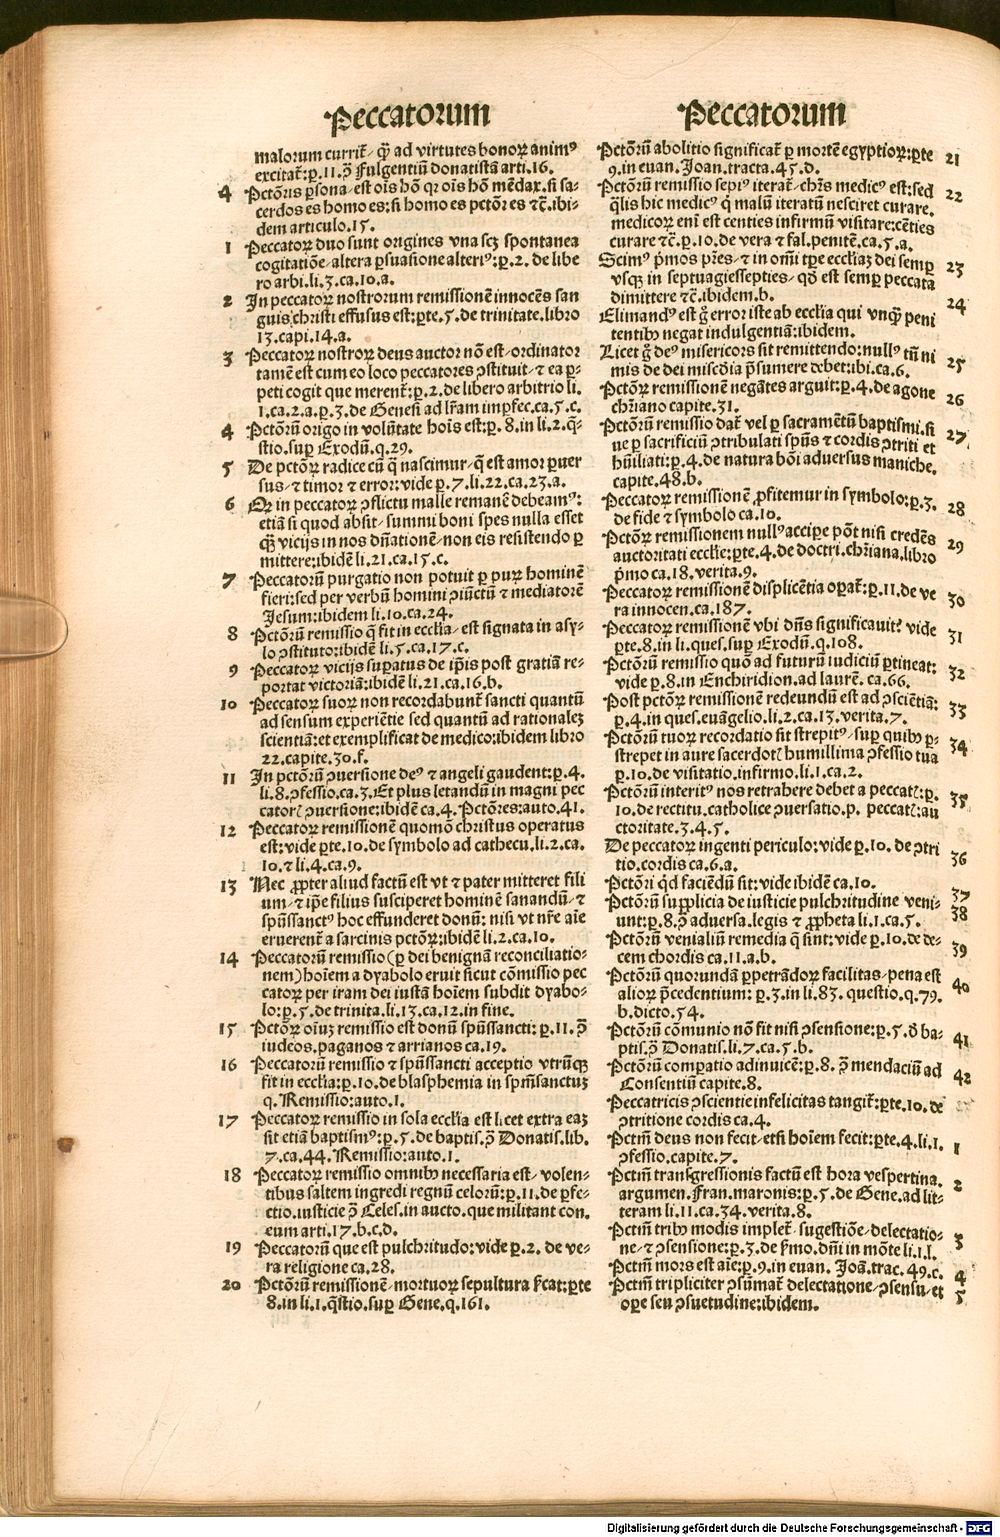 Peccatorum
malorum currit̄ / q̄ʒ ad virtutes honoꝝ animꝰ
excitat̄: ꝑ. 11. ↄ̄ Fulgentiū donatistā arti. 16.
4 Pctōris ꝑsona / est oīs hō qꝛ oīs hō mēdax. si sa⸗
cerdos es homo es: si homo es pctōr es ⁊ c̄. ibi⸗
dem articulo. 15.
1 Peccatoꝝ duo sunt origines vna scʒ spontanea
cogitatiōe / altera ꝑsuasione alteriꝰ: ꝑ. 2. de libe
ro arbi. li. 3. ca. 10. a.
2 In peccatoꝝ nostrorum remissionē innocēs san
guis christi effusus est: ꝑte. 5. de trinitate. libro
13. capi. 14. a.
3 Peccatoꝝ nostroꝝ deus auctor nō est / ordinator
tamē est cum eo loco peccatores ↄstituit / ⁊ ea ꝑ⸗
peti cogit que merent̄: ꝑ. 2. de libero arbitrio li.
1. ca. 2. a. ꝑ. 3. de Genesi ad lr̄am imꝑfec. ca. 5. c.
4 Pctōrū origo in volūtate hoīs est: ꝑ. 8. in li. 2. q̄⸗
stio. suꝑ Exodū. q. 29.
5 De pctōꝝ radice cū q̄ nascimur / q̄ est amor ꝑuer
sus / ⁊ timor ⁊ error: vide ꝑ. 7. li. 22. ca. 23. a.
6 Qꝛ in peccatoꝝ ↄflictu malle remanē debeamꝰ:
etiā si quod absit / summi boni spes nulla esset
q̄ʒ vicijs in nos dn̄ationē / non eis resistendo ꝑ
mittere: ibidē li. 21. ca. 15. c.
7 Peccatorū purgatio non potuit ꝑ puꝝ hominē
fieri: sed per verbū homini ↄiūctū ⁊ mediatorē
Jesum: ibidem li. 10. ca. 24.
8 Pctōrū remissio q̄ fit in eccl'ia / est signata in asy⸗
lo ↄstituto: ibidē li. 5. ca. 17. c.
9 Peccatoꝝ vicijs suꝑatus de ip̄is post gratiā re⸗
portat victoriā: ibidē li. 21. ca. 16. b.
10 Peccatoꝝ suoꝝ non recordabunt̄ sancti quantū
ad sensum experiētie sed quantū ad rationaleʒ
scientiā: et exemplificat de medico: ibidem libro
22. capite. 30. f.
11 In pctōrū ↄuersione deꝰ ⁊ angeli gaudent: ꝑ. 4.
li. 8. ↄfessio. ca. 3. Et plus letandū in magni pec
catorꝭ ↄuersione: ibidē ca. 4. Pctōres: auto. 41.
12 Peccatoꝝ remissionē quomō christus operatus
est: vide ꝑte. 10. de symbolo ad cathecu. li. 2. ca.
10. ⁊ li. 4. ca. 9.
13 Nec ꝓpter aliud factū est vt ⁊ pater mitteret fili
um / ⁊ ip̄e filius susciperet hominē sanandū / ⁊
spūssanctꝰ hoc effunderet donū: nisi vt nr̄e aīe
eruerent̄ a sarcinis pctōꝝ: ibidē li. 2. ca. 10.
14 Peccatorū remissio (ꝑ dei benignā reconciliatio⸗
nem) hoīem a dyabolo eruit sicut cōmissio pec
catoꝝ per iram dei iustā hoīem subdit dyabo⸗
lo: ꝑ. 5. de trinita. li. 13. ca. 12. in fine.
15 Pctōꝝ oīuʒ remissio est donū spūssancti: ꝑ. 11. ↄ̄
iudeos. paganos ⁊ arrianos ca. 19.
16 Peccatorū remissio ⁊ spūssancti acceptio vtrūqʒ
fit in eccl'ia: ꝑ. 10. de blasphemia in spm̄sanctuʒ
q. Remissio: auto. 1.
17 Peccatoꝝ remissio in sola eccl'ia est licet extra eaʒ
sit etiā baptismꝰ: ꝑ. 5. de baptis. ↄ̄ Donatis. lib.
7. ca. 44. Remissio: auto. 1.
18 Peccatoꝝ remissio omnibꝫ necessaria est / volen⸗
tibus saltem ingredi regnū celorū: ꝑ. 11. de ꝑfe⸗
ctio. iusticie ↄ̄ Celes. in aucto. que militant con.
eum arti. 17. b. c. d.
19 Peccatorū que est pulchritudo: vide ꝑ. 2. de ve⸗
ra religione ca. 28.
20 Pctōrū remissionē / mortuoꝝ sepultura s̄cat: ꝑte
8. in li. 1. q̄stio. suꝑ Gene. q. 161.
Peccatorum
Pctōrū abolitio significat̄ ꝑ mortē egyptioꝝ: ꝑte 21
9. in euan. Joan. tracta. 45. d.
Pctōrū remissio sepiꝰ iterat̄ / chr̄s medicꝰ est: sed 22
q̄lis hic medicꝰ q̄ malū iteratū nesciret curare.
medicoꝝ eni᷑ est centies infirmū visitare: cēties
curare ⁊ c̄. ꝑ. 10. de vera ⁊ fal. penitē. ca. 5. a.
Scimꝰ pͥmos pr̄es / ⁊ in omī tꝑe eccl'iaʒ dei semꝑ 23
vsqʒ in septuagiessepties / qđ est semꝑ peccata
dimittere ⁊ c̄. ibidem. b.
Elimandꝰ est gͦ error iste ab eccl'ia qui vnq̄ʒ peni 24
tentibꝫ negat indulgentiā: ibidem.
Licet gͦ deꝰ misericors sit remittendo: nullꝰ tn̄ ni 25
mis de dei miscđia p̄sumere debet: ibi. ca. 6.
Pctōꝝ remissionē negātes arguit: ꝑ. 4. de agone 26
chr̄iano capite. 31.
Pctōrū remissio dat̄ vel ꝑ sacramētū baptismi. si 27
ue ꝑ sacrificiū ↄtribulati spūs ⁊ cordis ↄtriti et
hūiliati: ꝑ. 4. de natura bōi adversus maniche.
capite. 48. b.
Peccatoꝝ remissionē ꝓfitemur in symbolo: ꝑ. 3. 28
de fide ⁊ symbolo ca. 10.
Pctōꝝ remissionem nullꝰ acciꝑe pōt nisi credēs 29
auctoritati eccl'ie: ꝑte. 4. de doctri. chr̄iana. libro
pͥmo ca. 18. verita. 9.
Peccatoꝝ remissionē displicētia oꝑat̄: ꝑ. 11. de ve 30
ra innocen. ca. 187.
Peccatoꝝ remissionē vbi dn̄s significauit? vide 31
ꝑte. 8. in li. ques. suꝑ Exodū. q. 108.
Pctōrū remissio quō ad futurū iudiciū ꝑtineat: 32
vide ꝑ. 8. in Enchiridion. ad laurē. ca. 66.
Post pctōꝝ remissionē redeundū est ad ↄsciētiā: 33
ꝑ. 4. in ques. euāgelio. li. 2. ca. 13. verita. 7.
Pctōrū tuoꝝ recordatio sit strepitꝰ / suꝑ quibꝫ ꝑ⸗ 34
strepet in aure sacerdotꝭ humillima ↄfessio tua
ꝑ. 10. de visitatio. infirmo. li. 1. ca. 2.
Pctōrū interitꝰ nos retrahere debet a peccatꝭ: ꝑ. 35
10. de rectitu. catholice ↄuersatio. p. peccatꝭ: au
ctoritate. 3. 4. 5.
De peccatoꝝ ingenti periculo: vide ꝑ. 10. de ↄtri 36
tio. cordis ca. 6. a.
Pctōri qͥd faciēdū sit: vide ibidē ca. 10. 37
Pctōrū supplicia de iusticie pulchritudine veni⸗ 38
unt: ꝑ. 8. ↄ̄ adversa. legis ⁊ ꝓpheta li. 1. ca. 5.
Pctōrū venialiū remedia q̄ sint: vide ꝑ. 10. de de⸗ 39
cem chordis ca. 11. a. b.
Pctōꝝ quorundā ꝑpetrādoꝝ facilitas / pena est 40
alioꝝ p̄cedentium: ꝑ. 3. in li. 83. questio. q. 79.
b. dicto. 54.
Pctōrū cōmunio nō fit nisi ↄsensione: ꝑ. 5. đ ba⸗ 41
ptis. ↄ̄ Donatis. li. 7. ca. 5. b.
Pctōrū comꝑatio adinuicē: ꝑ. 8. ↄ̄ mendaciū ad 42
Consentiū capite. 8.
Peccatricis ↄscientie infelicitas tangit̄: ꝑte. 10. de
ↄtritione cordis ca. 4.
Pctm̄ deus non fecit / etsi hoīem fecit: ꝑte. 4. li. 1. 1
ↄfessio. capite. 7.
Pctm̄ transgressionis factū est hora vespertina. 2
argumen. Fran. maronis: ꝑ. 5. de Gene. ad lit⸗
teram li. 11. ca. 34. verita. 8.
Pctm̄ tribꝫ modis implet̄. sugestiōe / delectatio⸗ 3
ne / ⁊ ↄsensione: ꝑ. 3. de s̄mo. dn̄i in mōte li. 1. l.
Pctm̄ mors est aīe: ꝑ. 9. in euan. Joā. trac. 49. c. 4
Pctm̄ tripliciter ↄsūmat̄ delectatione / ↄsensu / et 5
oꝑe seu ↄsuetudine: ibidem.
Digitalisierung gefördert durch die Deutsche Forschungsgemeinschaft - DFG